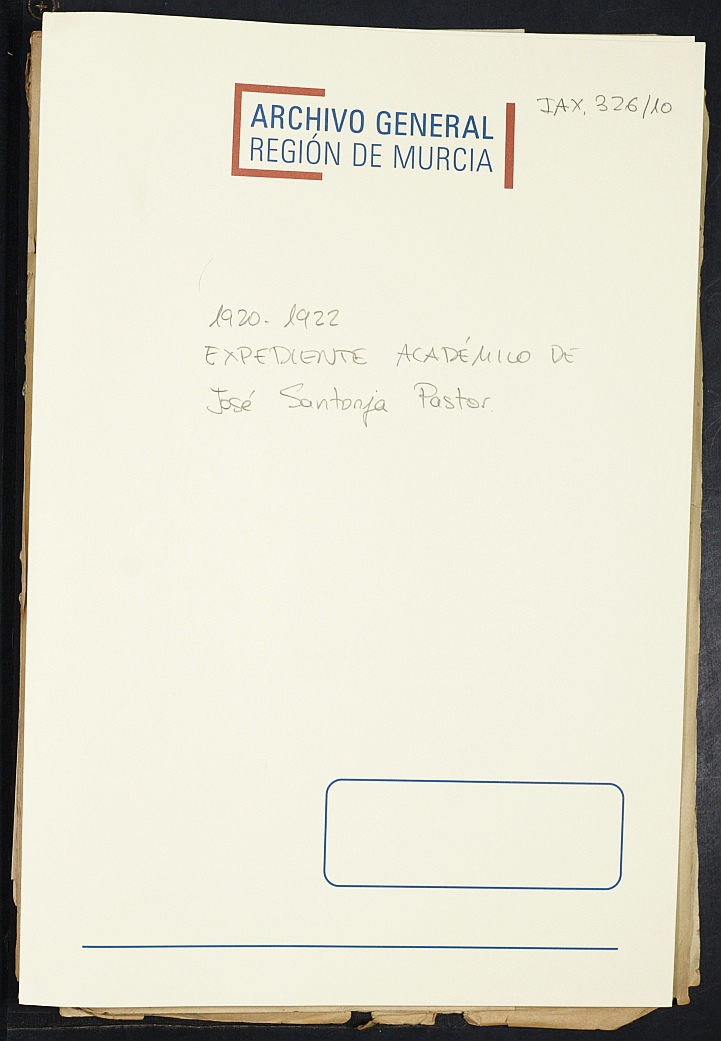 IAX, 326/10
ARCHIVO GENERAL
REGIÓN DE MURCIA
1920-1922
EXPEDIENTE ACADÉMICO DE
José Santonja Pastor.